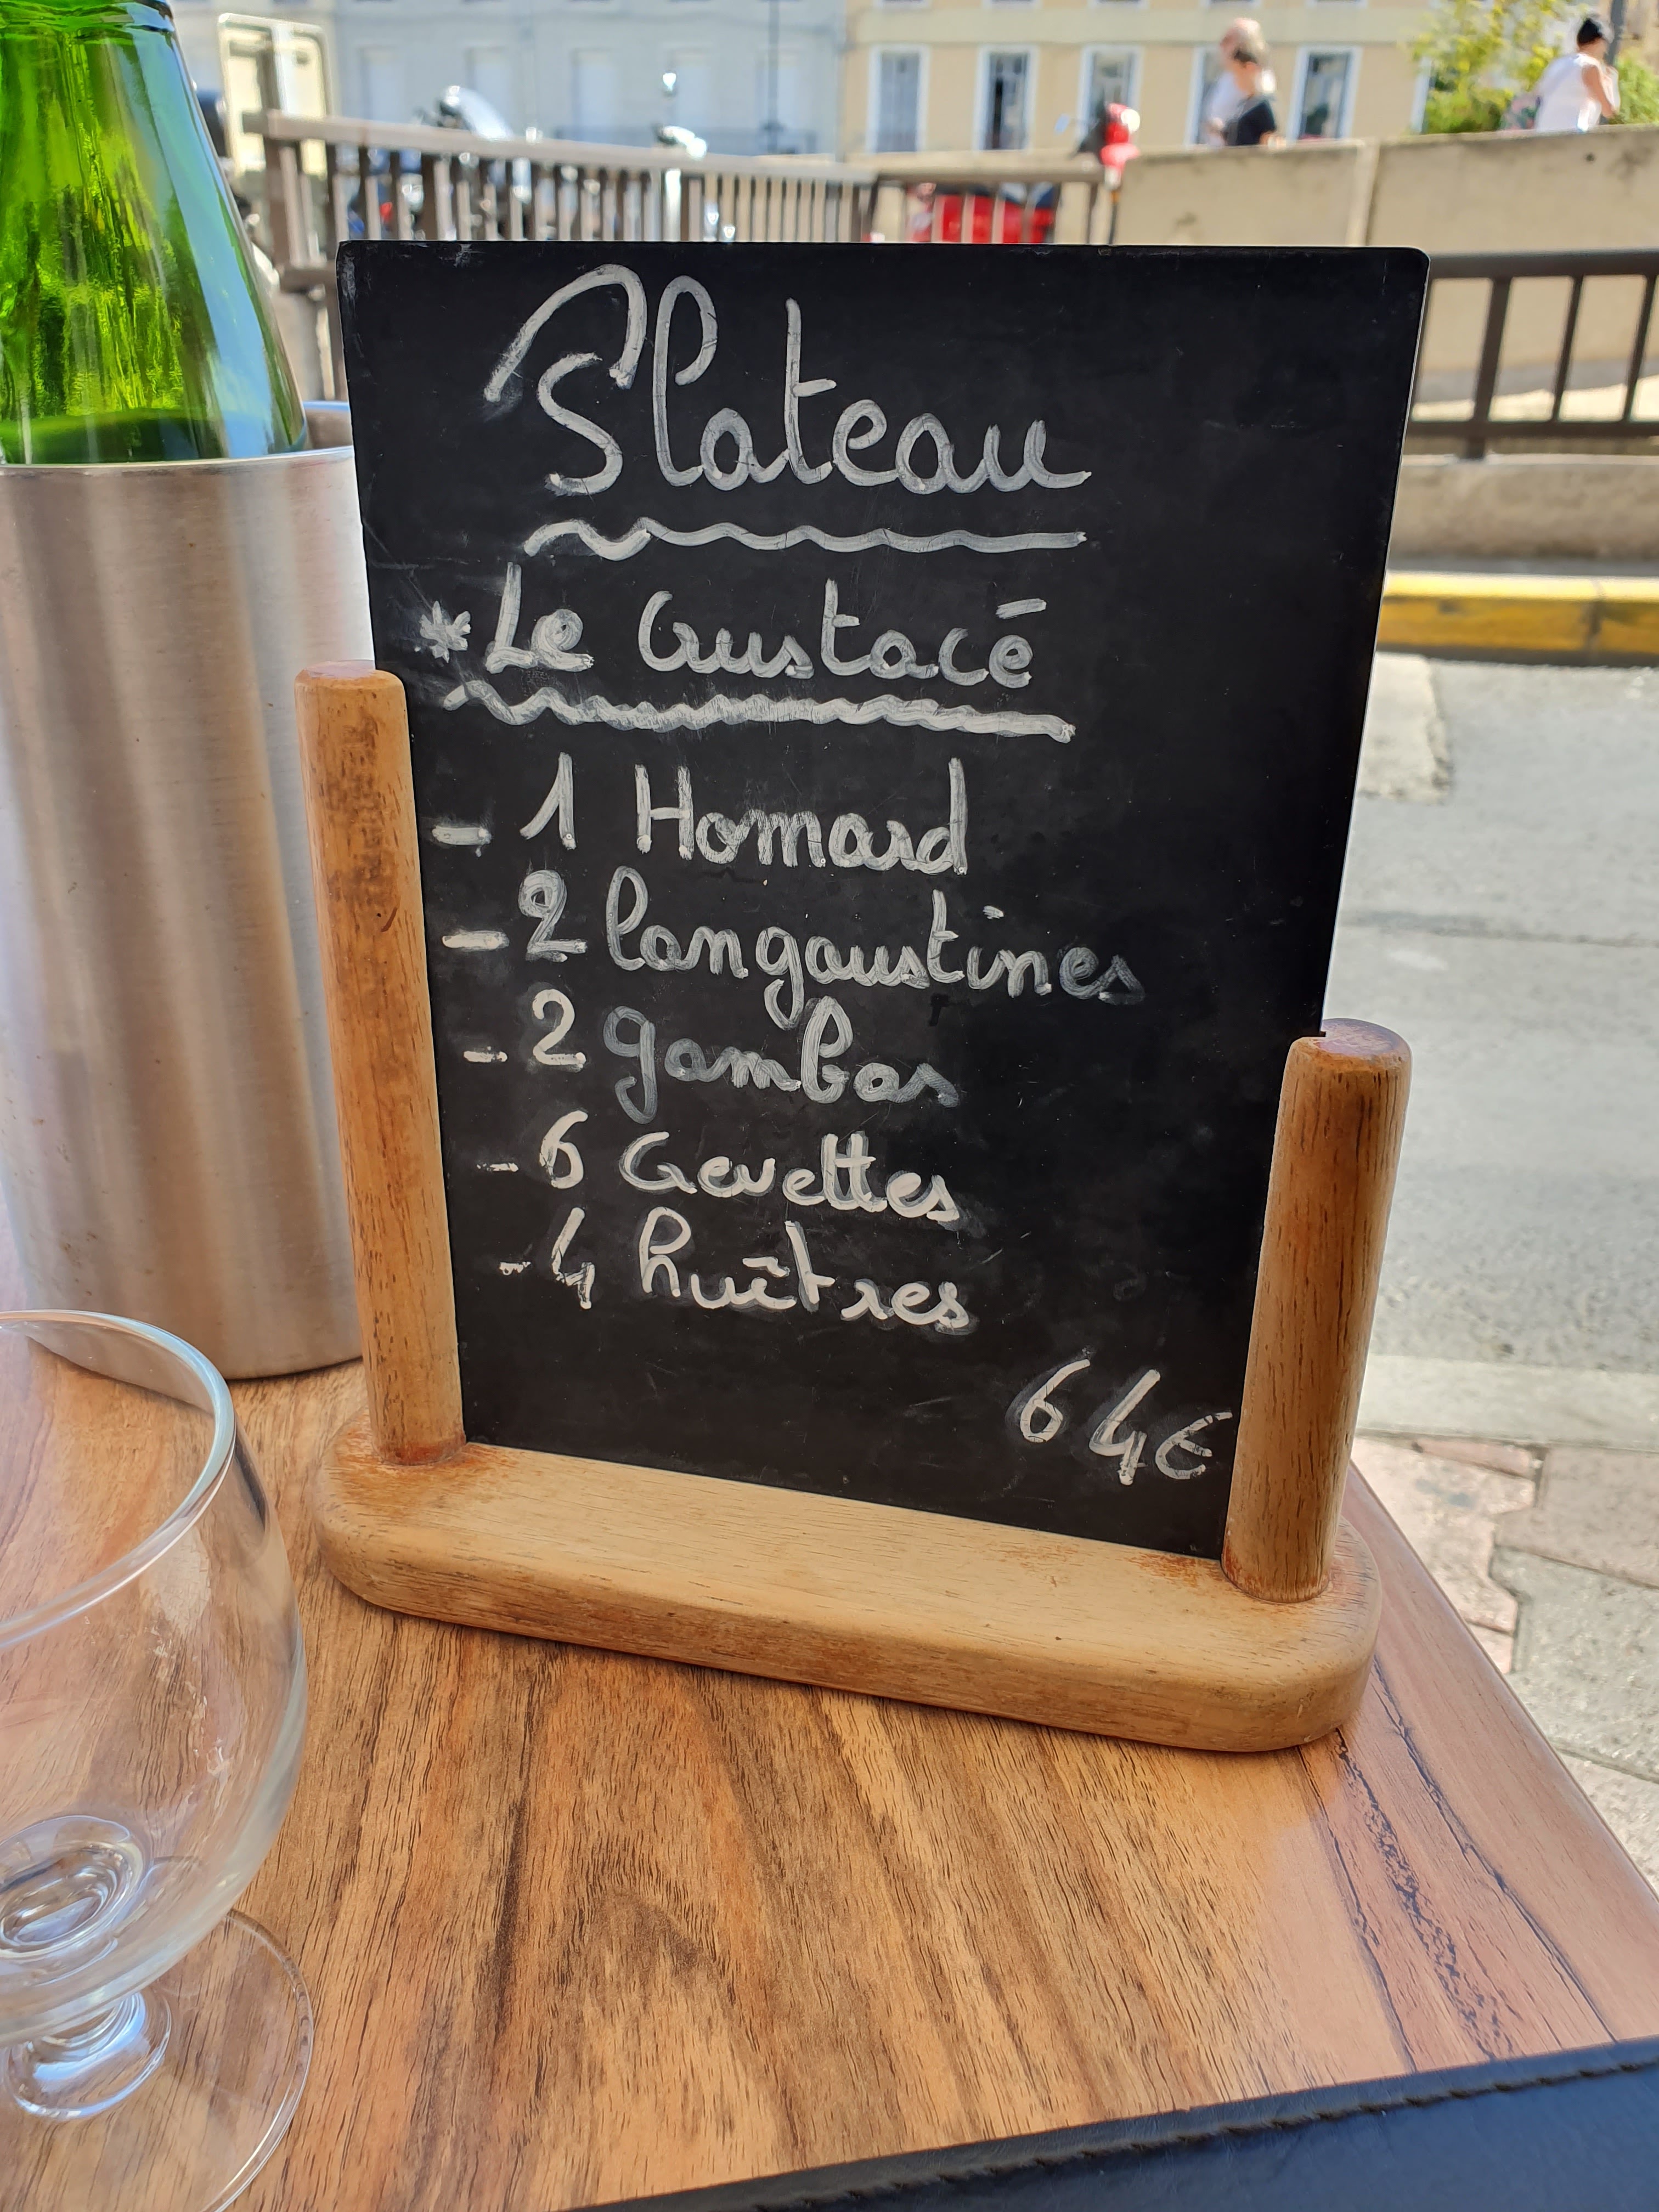 Plateau
* Le Crustacé
- 1 Homard
- 2 langoustines
- 2 gambas
- 6 Crevettes
- 4 huîtres
64€